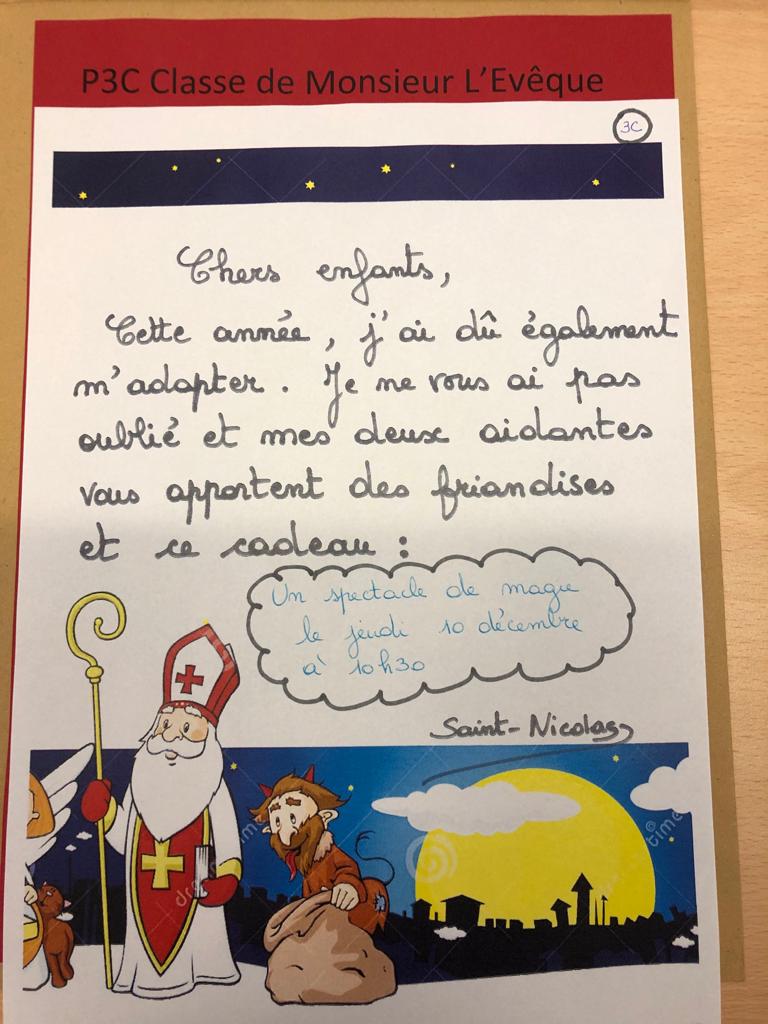 P3C Classe de Monsieur L'Evêque
3C
Chers enfants,
Cette année, j'ai dû également
m'adapter. Je ne vous ai pas
oublié et mes deux aidantes
vous apportent des friandises
et ce cadeau :
Un spectacle de magie
le jeudi 10 décembre
à 10h30
Saint-Nicolas